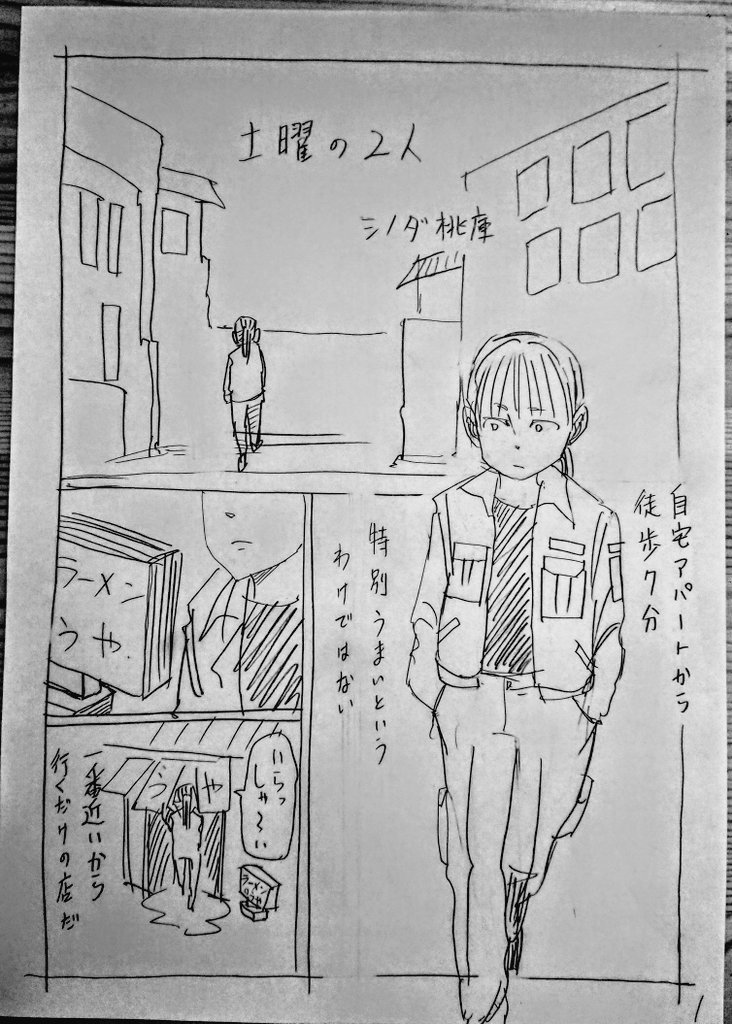 土曜の2人
シノダ桃庫
自宅アパートから
徒歩7分
特別うまいという
わけではない
ラーメン
うや
うや
いらっ
しゃ〜い
ラーメン
うや
一番近いから
行くだけの店だ
1